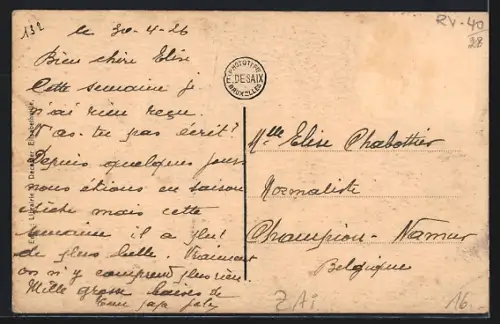 132
le 30-4-26
Bien chère Elise
Cette semaine je
n'ai rien reçu.
N'as-tu pas écrit?
Depuis quelques jours
nous étions en saison
sèche mais cette
semaine il a plu
de plus belle. Vraiment
on n'y comprend plus rien.
Mille gros baisers de
PHOTOTYPIE
E. DESAIX
BRUXELLES
RV-40
28
Mlle Elise Chabottier
Normaliste
Champion-Namur
Belgique
ZAI
16.-